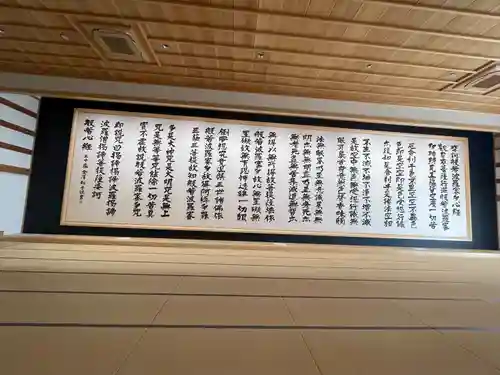 摩訶般若波羅蜜多心経
観自在菩薩行深般若波羅蜜
多時照見五蘊皆空度一切苦
厄舎利子色不異空空不異色
色即是空空即是色受想行識
亦復如是舎利子是諸法空相
不生不滅不垢不浄不増不減
是故空中無色無受想行識無
眼耳鼻舌身意無色声香味触
法無眼界乃至無意識界無無
明亦無無明尽乃至無老死亦
無老死尽無苦集滅道無智亦
無得以無所得故菩提薩埵依
般若波羅蜜多故心無罣礙無
罣礙故無有恐怖遠離一切顛
倒夢想究竟涅槃三世諸仏依
般若波羅蜜多故得阿耨多羅
三藐三菩提故知般若波羅蜜
多是大神咒是大明咒是無上
咒是無等等咒能除一切苦真
実不虚故説般若波羅蜜多咒
即説咒曰羯諦羯諦波羅羯諦
波羅僧羯諦菩提薩婆訶
般若心経